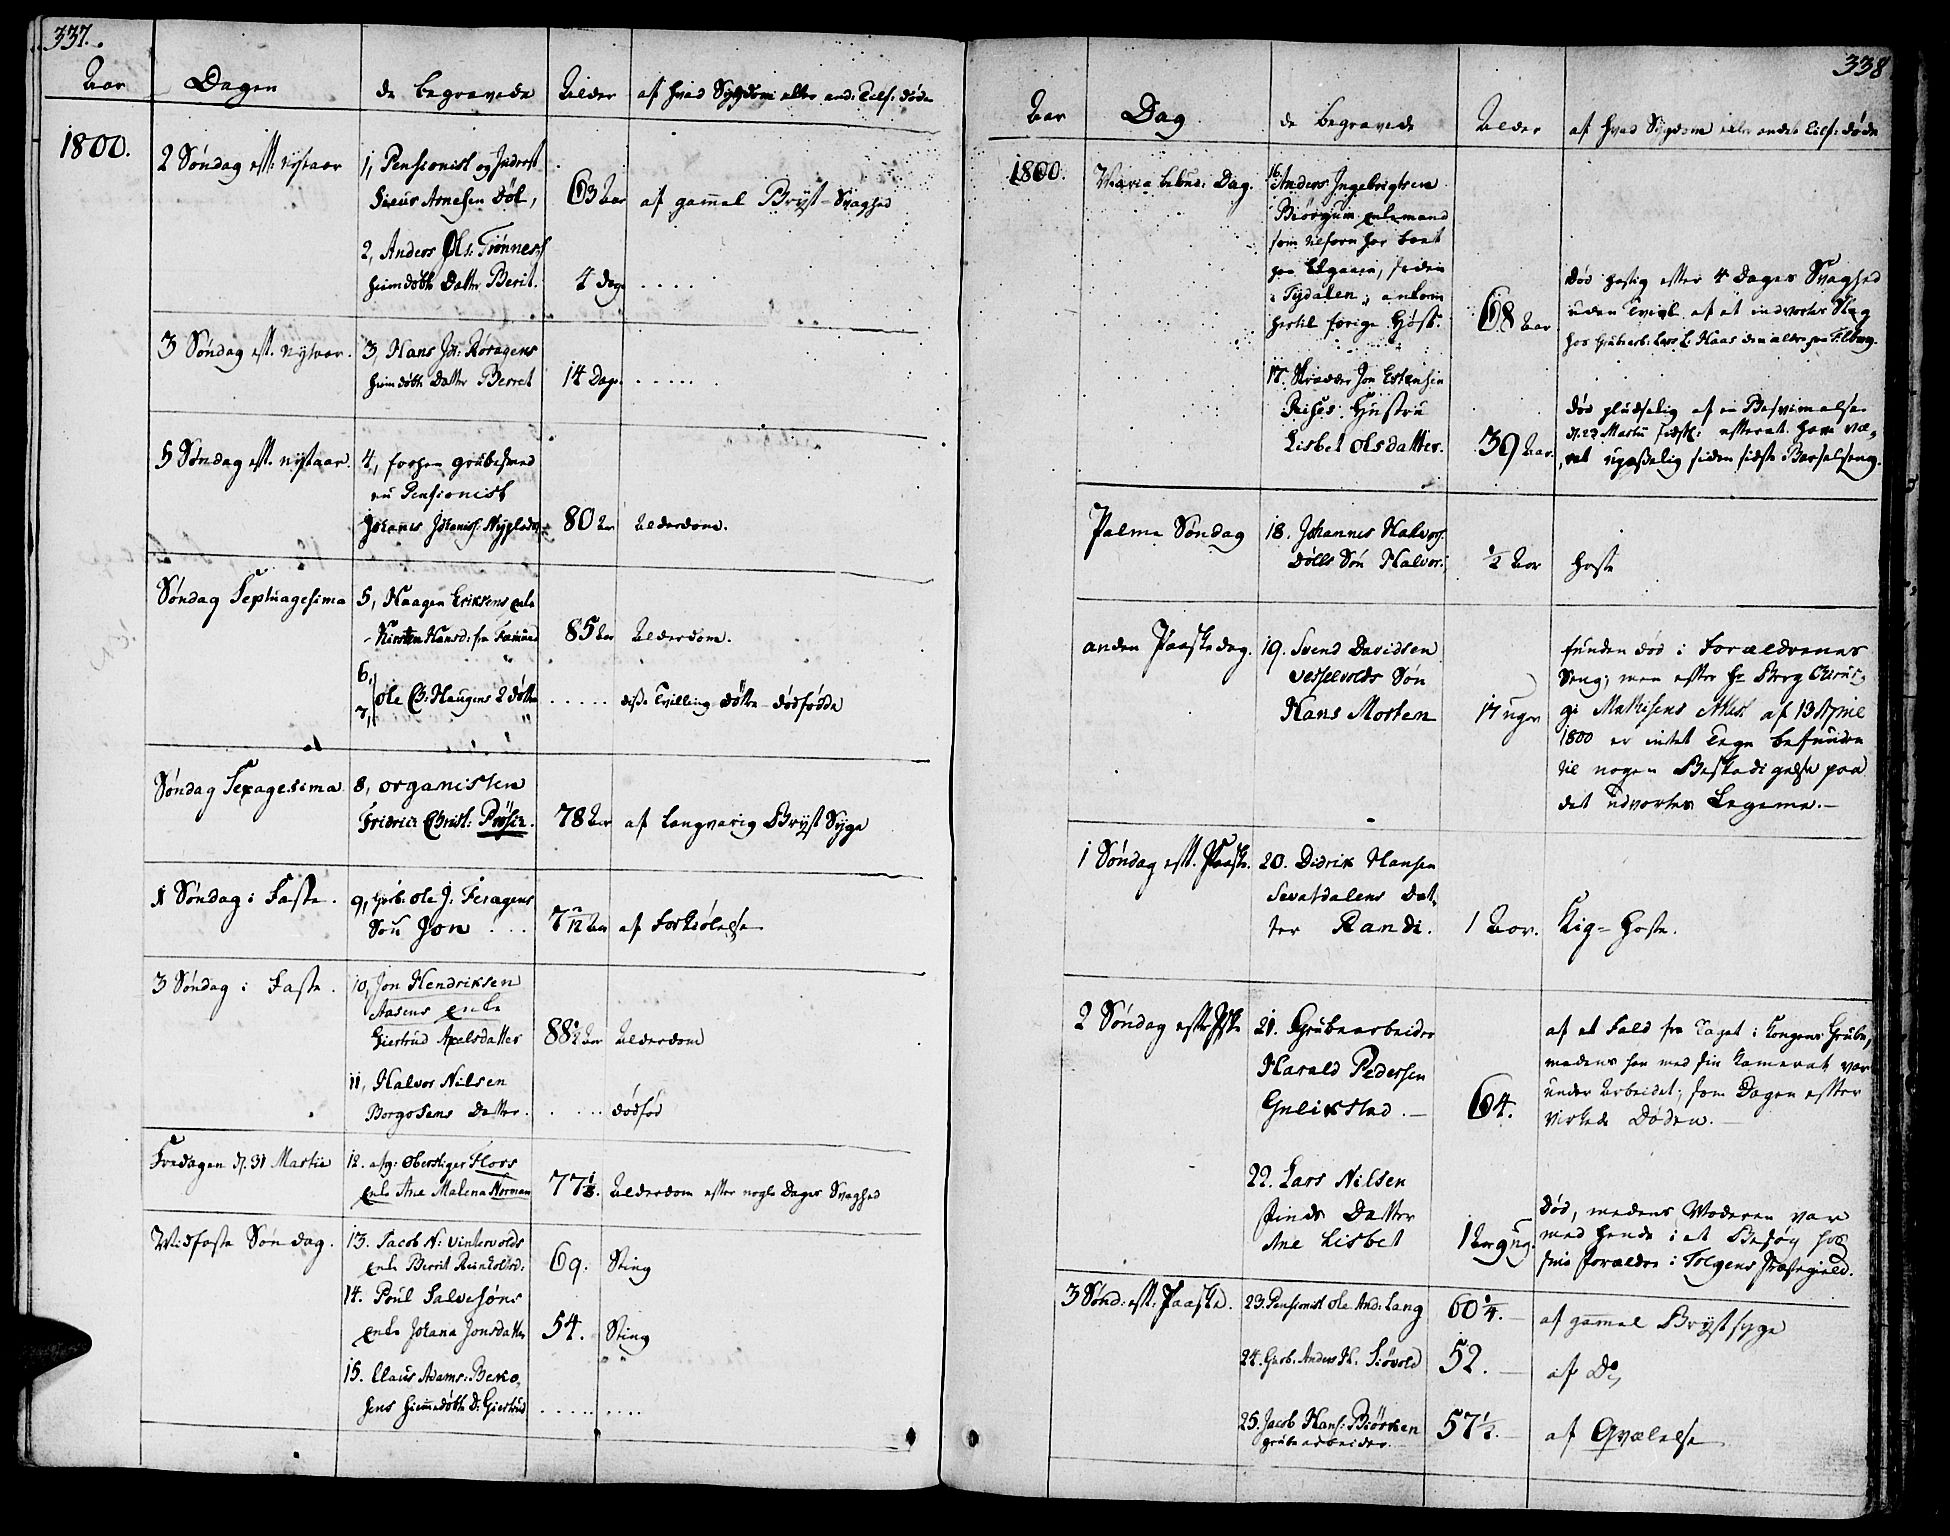 337.
Aar Dagen de begravede Alder af hvad Sygdom eller and: Tilf: døde
1800.
2 Søndag eft: nytaar 1, Pensionist og
Arnesen Døl, 63 Aar af gammel Bryst-Svaghed
2, Anders Ols: Tiønnes
hiemdøbte Datter Berit. 4 Dage .....
3 Søndag eft. nytaar. 3, Hans Joh: Roragens
hiemdøbte Datter Berret 14 Dage .....
5 Søndag eft. nytaar. 4, forhen grubesmed
nu Pensionist
Johanes Johaness: 80 Aar Alderdom.
Søndag Septuagesima 5, Haagen Eriksens enke
Kirsten Hansd: fra Fæmund 85 Aar Alderdom.
6,
7, Ole Ch: Haugens 2 døttre ..... disse Tvilling døttre dødfødde
Søndag Sexagesima 8, organisten
Fridric Christ: Prøsie. 78 Aar af langvarig Bryst Syge
1 Søndag i Faste. 9, Ole J. Feragens
Søn Jon ... 7 Aar af Forkiølelse
3 Søndag i Faste. 10, Jon Hendriksen
Aasens enke
Giertrud Axelsdatter 88½ Aar Alderdom
11, Halvor Nilsen
Borgosens Datter. ..... dødfød
Fredagen d. 31 Martii 12. afg: Oberstiger Flors
enke Ane Malena Norman 77½. Alderdom efter nogle Dages Svaghed
Midfaste Søndag. 13. Jacob N: Vintervolds
enke Berrit 69. Sting
14. Poul Salvesøns
enke Johana Jonsdatter 54. Sting
15. Claus Adams: Berko,
sens hiemmedøbte D: Giertrud .........
338
Aar Dag de begravede Alder af hvad Sygdom eller andet Tilf: døde
1800. Maria bebud: Dag. 16. Anders Ingebrigtsen
Biørgum enkemand
som tilforn har boet
paa Elgaaen, siden
i Tydalen, ankom
hertil forige Høst. 68 Aar
Død hastig efter 4 Dages Svaghed
uden Tvivl af et indvortes Slag
hos Grubearb: Lars L. Haas den aldre paa Flben.
17. Skrædder Jon Estensen
Rises Hustru
Lisbet Olsdatter. 39 Aar.
død pludselig af en Besvimelse
d. 23 Martii sidstl: efterat have væ,
ret upasselig siden sidste Barselseng.
Palme Søndag 18. Johannes Halvors:
Dølls Søn Halvor. ½ Aar Hoste
anden Paaskedag. 19. Svend Davidsen
Vesselvolds Søn
Hans Morten 17 uger
funden død i Forældrenes
Seng; men efter Hr Berg Chirur,
gi Mathisens Attest af 13 April
1800 er intet Tegn befunden
til nogen Beskadigelse paa
det udvortes Legeme.
1 Søndag eft. Paaske. 20. Didrik Hansen
Sevatdalens Dat,
ter Randi. 1 Aar. Kig-Hoste.
2 Søndag efter Pske 21. Grubearbeider
Harald Pedersen
Gulikstad. 64.
af et Fald fra Taget i Kongens Grube,
medens han med sin Kamerat var
under Arbeidet, som Dagen efter
virkede Døden.
22. Lars Nilsen
Rinds Datter
Ane Lisbet 1 Aar 9 ug.
Død, medens Moderen var
med hende i et Besøg hos
sine forældre i Tolgens Præstegield.
3 Sønd: eft: Paaske. 23. Pensionist Ole And: Lang 60¼. af gamel Brystsyge
24. Grb. Anders H. Siøvold 52. af Do,
25. Jacob Hans: Biørken
grubearbeider. 57½. af Qvælelse